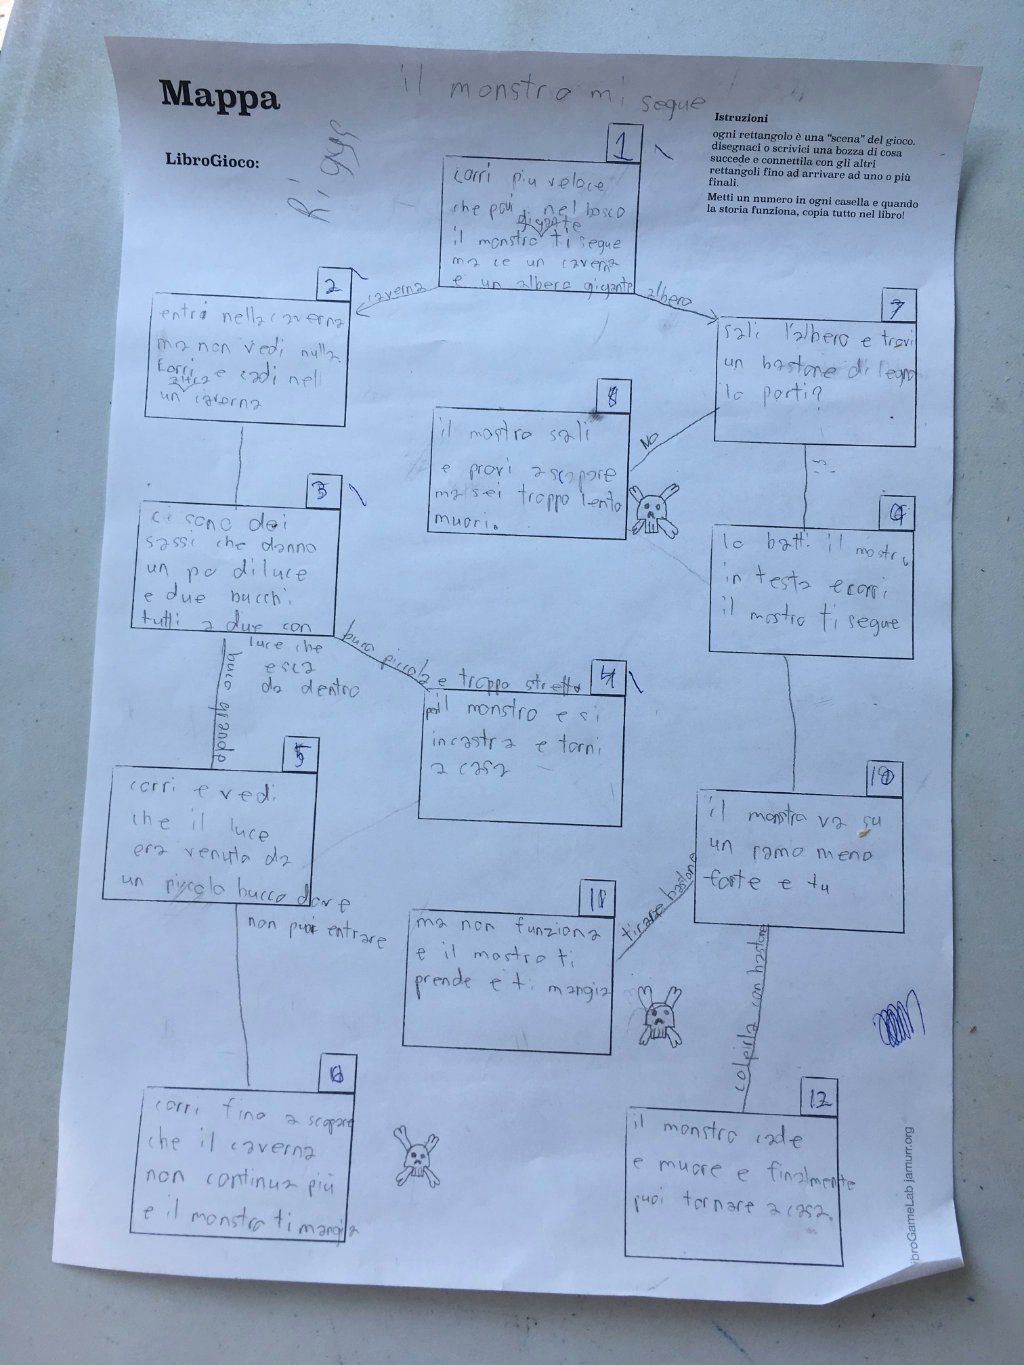 Mappa
il monstro mi segue
LibroGioco:
Riggs
Istruzioni
ogni rettangolo è una "scena" del gioco.
disegnaci o scrivici una bozza di cosa
succede e connettila con gli altri
rettangoli fino ad arrivare ad uno o più
finali.
Metti un numero in ogni casella e quando
la storia funziona, copia tutto nel libro!
1
corri piu veloce
che poi nel bosco
gigante
il monstro ti segue
ma ce un caverna
e un albero gigante
caverna
albero
2
entri nella caverna
ma non vedi nulla
Corri e cadi nell
un caverna
7
sali l'albero e trovi
un bastone di legno
lo porti?
NO
8
il mostro sali
e provi a scapare
ma sei troppo lento
muori.
3
ci sono dei
sassi che danno
un po di luce
e due bucchi
tutti a due con
luce che
esca
da dentro
buco grande
buco piccolo
lo batti il mostro
in testa e corri
il mostro ti segue
4
e troppo stretto
il monstro e si
incastra e torni
a casa
5
corri e vedi
che il luce
era venuta da
un piccolo bucco dove
non puoi entrare
10
il monstro va su
un ramo meno
forte e tu
tirare bastone
colpirlo con bastone
11
ma non funziona
e il mostro ti
prende e ti mangia
6
corri fino a scopare
che il caverna
non continua più
e il monstro ti mangia
12
il monstro cade
e muore e finalmente
puoi tornare a casa.
broGameLab jamurr.org